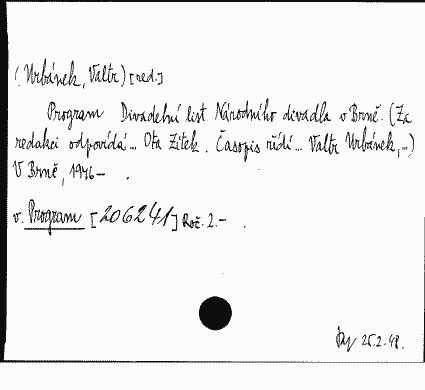 (Urbánek, Valtr) [red.]
Program Divadelní list Národního divadla v Brně. (Za
redakci odpovídá... Ota Zítek. Časopis řídí... Valtr Urbánek,...)
V Brně, 1946- .
v. Program [206241] Roč. 2.- .
25.2.48.